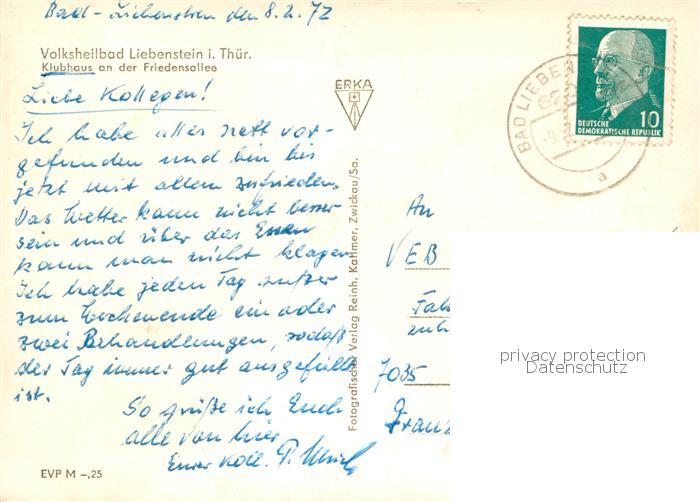 Bad-Liebenstein den 8.2.72
Volksheilbad Liebenstein i. Thür.
Klubhaus an der Friedensallee
Liebe Kollegen!
Ich habe alles nett vor-
gefunden und bin bis
jetzt mit allem zufrieden.
Das Wetter kann nicht besser
sein und über das Essen
kann man nicht klagen.
Ich habe jeden Tag außer
zum Wochenende ein oder
zwei Behandlungen, sodaß
der Tag immer gut ausgefüllt
ist.
So grüße ich Euch
alle von hier
Euer Koll. P.
EVP M -,25
ERKA
Fotografischer Verlag Reinh. Kallmer, Zwickau/Sa.
BAD LIEBEN
62
-9.
a
DEUTSCHE
DEMOKRATISCHE REPUBLIK
10
An
VEB
7035
Franz
privacy protection
Datenschutz